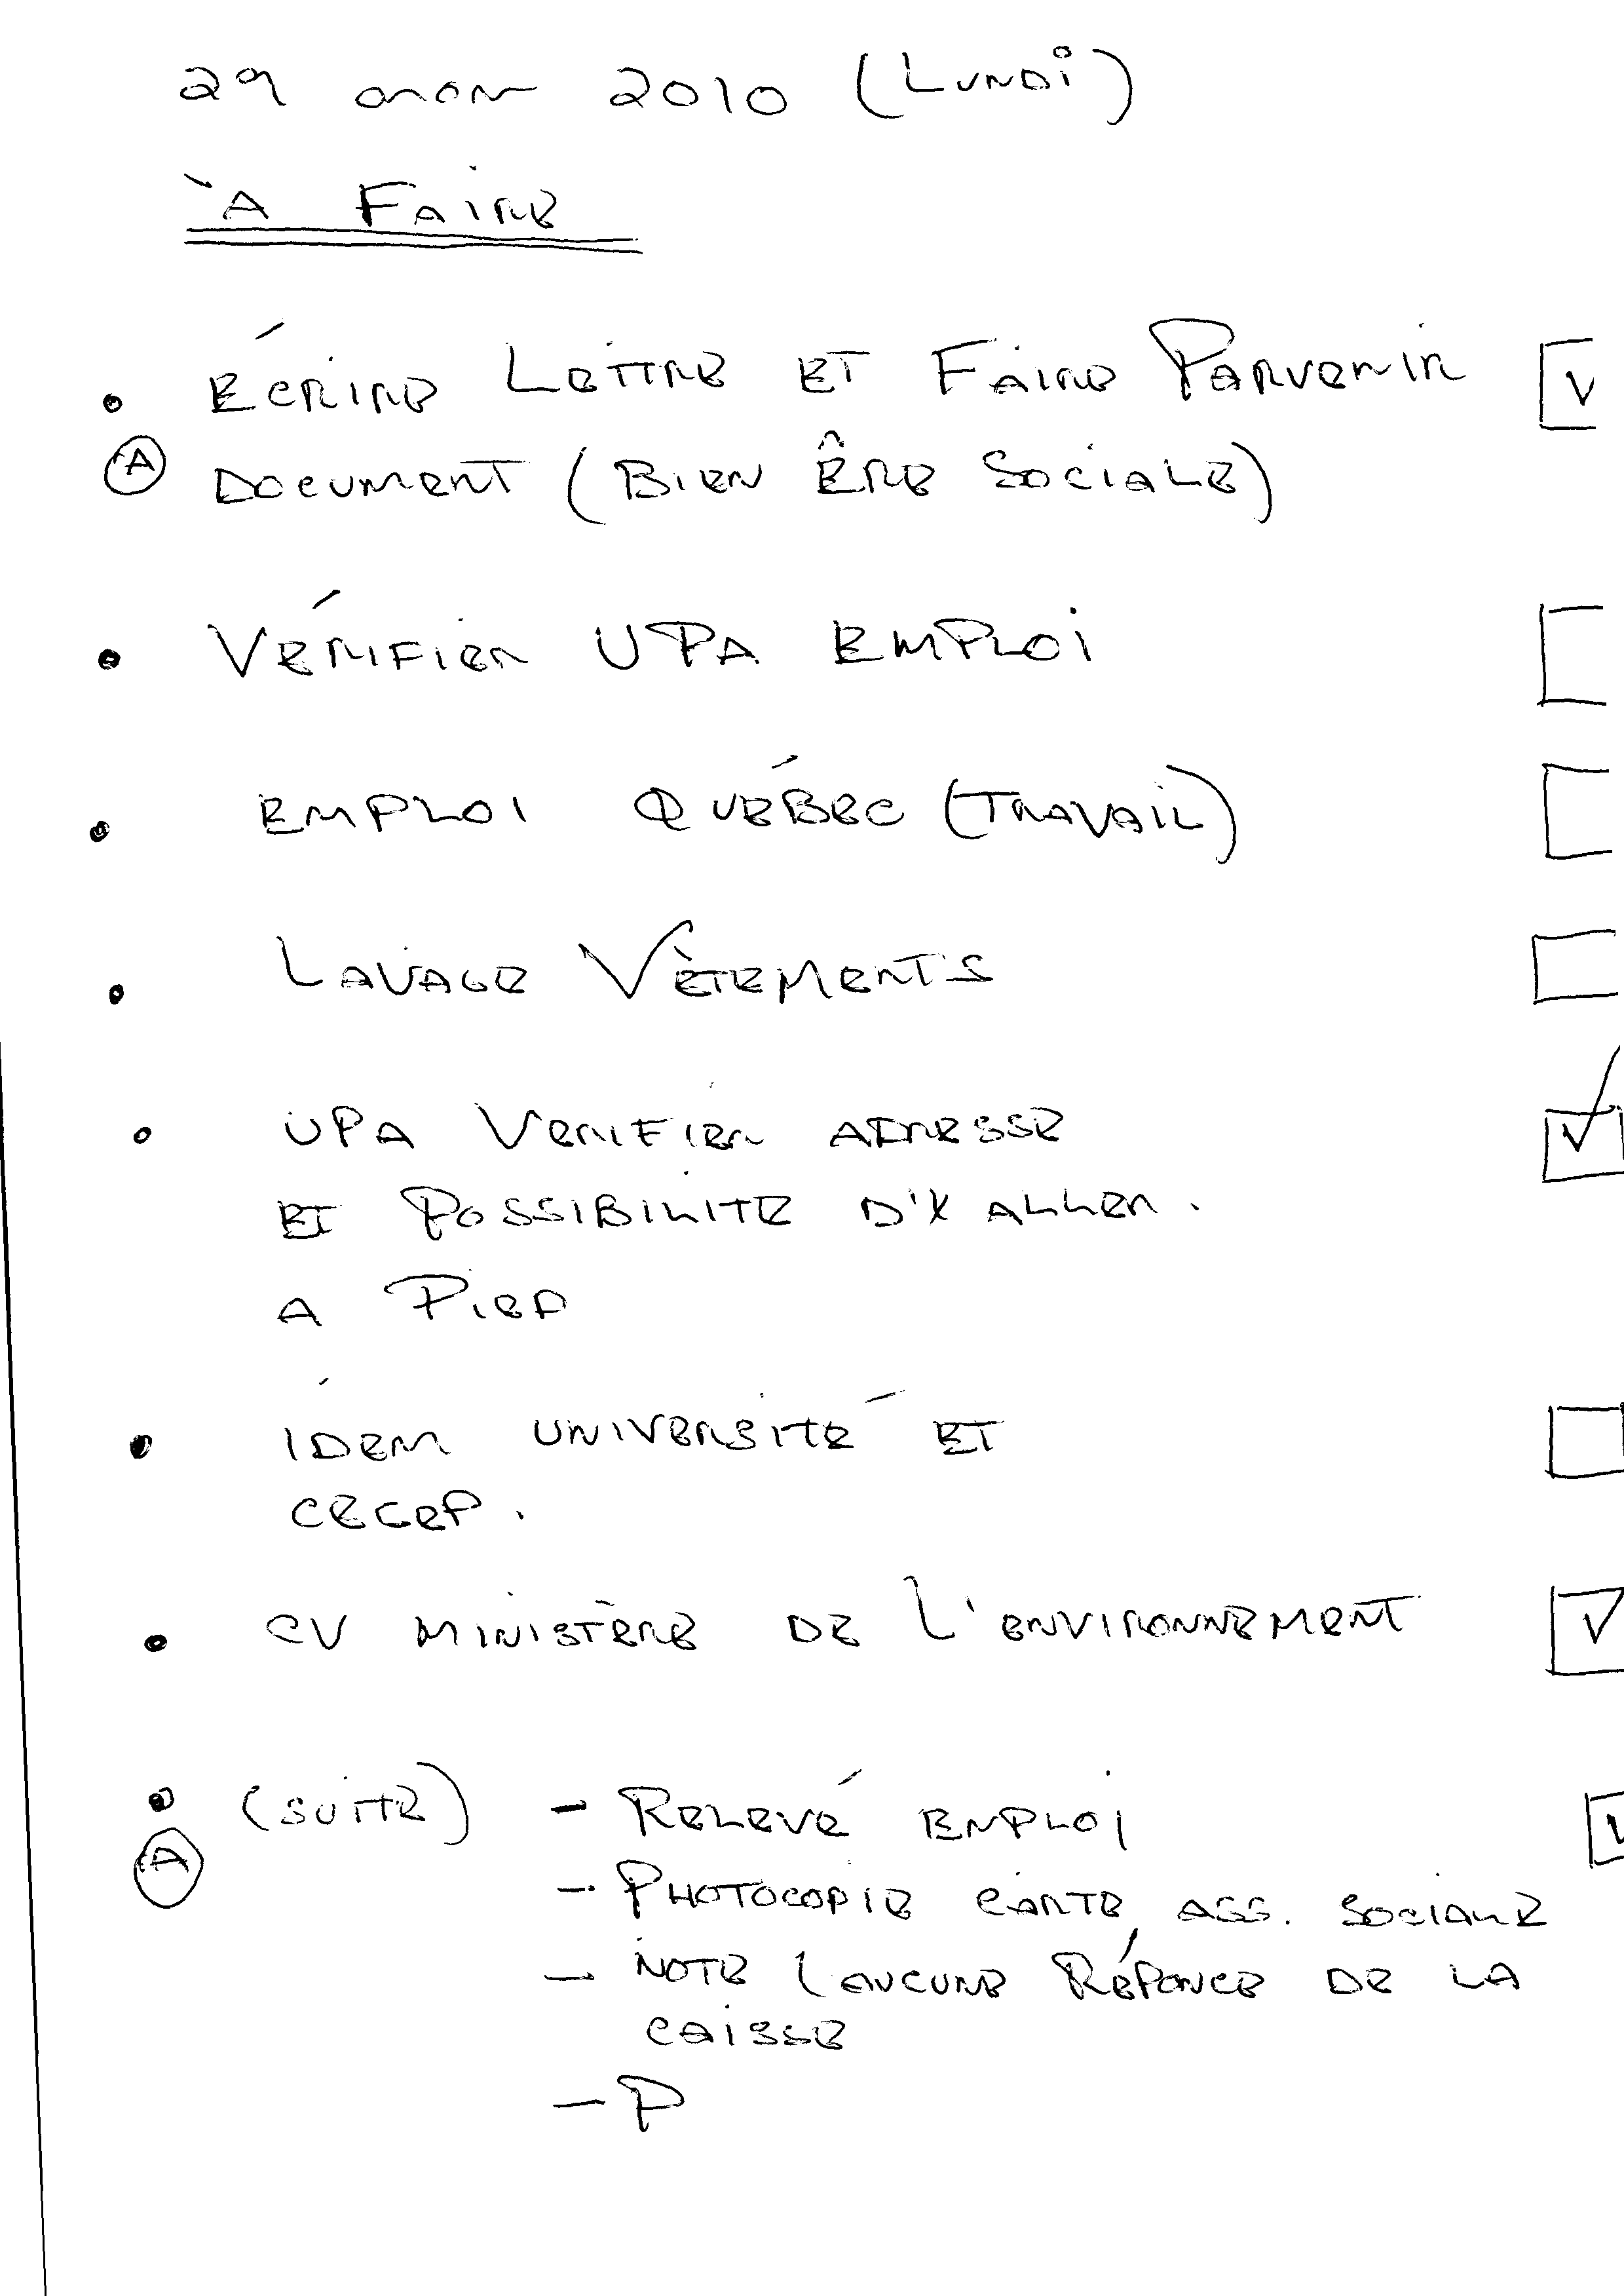 29 mars 2010 (LUNDI)
À FAIRE
• ÉCRIRE LETTRE ET FAIRE PARVENIR
(A) DOCUMENT (BIEN ÊRE SOCIALE)
• VÉRIFIER UPA EMPLOI
• EMPLOI QUÉBEC (TRAVAIL)
• LAVAGE VÈTEMENTS
• UPA VERIFIER ADRESSE
ET POSSIBILITE D'Y ALLER.
A PIED
• IDEM UNIVERSITÉ ET
CEGEP.
• CV MINISTÈRE DE L'ENVIRONNEMENT
• (SUITE) - RELEVÉ EMPLOI
(A)
- PHOTOCOPIE CARTE ASS. SOCIALE
- NOTE (AUCUNE RÉPONCE DE LA
CAISSE
- P